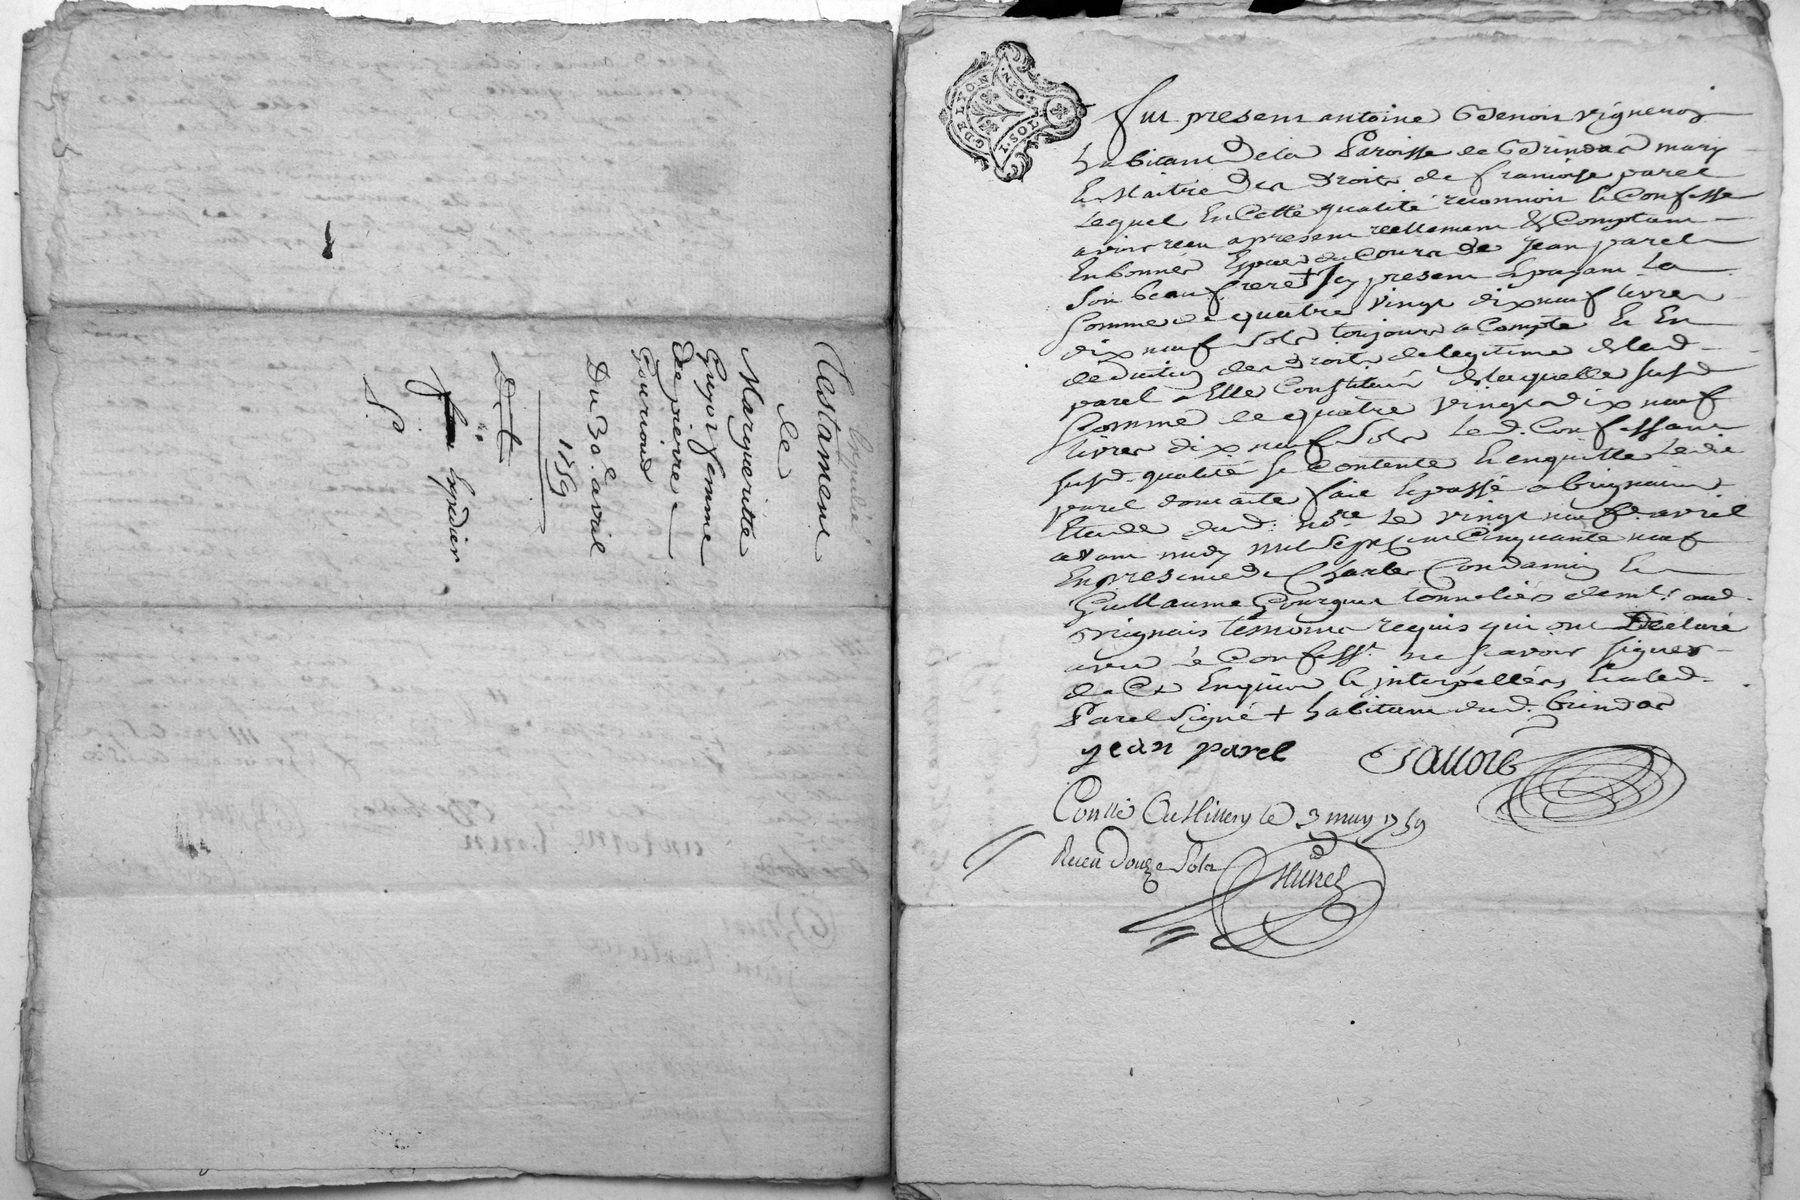 expédié
Testament
de
Margueritte
Guyot femme
de pierre
Gouriond
Du 30.e avril
1759
D. t.
expédier
S.
G DE LYON
N. GLE
1. SOL
fut present antoine Benoit vigneron
habitant de la Paroisse de Brindas mary
et Maitre des droits de françoise parel
lequel En Cette qualité reconnoit et Confesse
avoir receu a present reellement et Comptant
En bonnes Especes du Cours de Jean parel
son beaufrere + icy present et payant La
somme de quatre vingt dix neuf livres
dix neuf sols toujours a Compte et En
deduction des droits de legitime de lad.
parel a Elle Constitués de laquelle susd.
somme de quatre vingt dix neuf
livres dix neuf sols Led. Confessant
susd. qualité se Contente et en quitte Ledit
parel dont acte fait et passé a brignais
Etude dud. nore Le vingt neuf avril
avant midy mil sept cent Cinquante neuf
En presence de Charles Condamin et
Guillaume Gourgues tonneliers demt. aud.
Brignais temoins requis qui ont Déclaré
avec le Confesst. ne sçavoir signer
de Ce Enquis et interpellés et a led.
Parel signé + habitant dud. brindas
jean parel
Conllé Cu st Illery le 3 may 1759
Receu douze sols